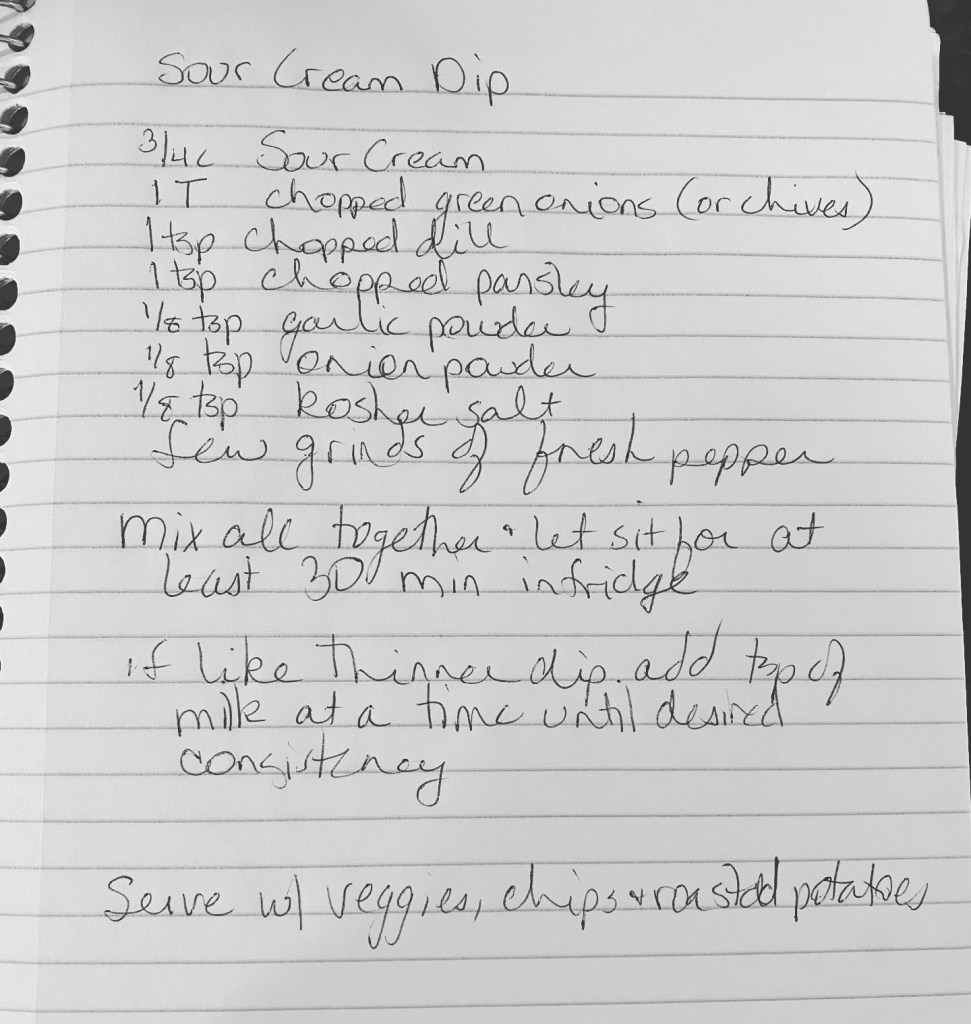 Sour Cream Dip
3/4 c Sour Cream
1 T chopped green onions (or chives)
1 tsp chopped dill
1 tsp chopped parsley
1/8 tsp garlic powder
1/8 tsp onion powder
1/8 tsp kosher salt
few grinds of fresh pepper
mix all together + let sit for at
least 30 min in fridge
if like thinner dip. add tsp of
milk at a time until desired
consistency
Serve w/ veggies, chips + roasted potatoes